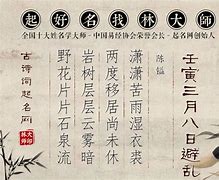 起好名找林大師
全国十大姓名学大师-中国易经协会荣誉会长-起名网创始人
壬寅三月八日避乱
陈镒
潇潇苦雨湿衣裳
两度移居尚未休
岩树层层云雾暗
野花片片石泉流
古诗词起名网
林大师印